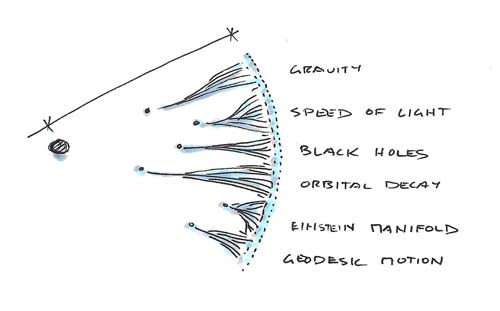 GRAVITY
SPEED OF LIGHT
BLACK HOLES
ORBITAL DECAY
EINSTEIN MANIFOLD
GEODESIC MOTION